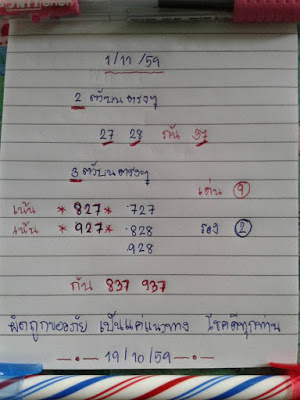 1/11/59
2 ตัวบน ตรงๆ
27 28 กัน 37
3 ตัวบน ตรงๆ
เด่น 9
เน้น *827* .727
เน้น *927* .828 รอง 2
.928
กัน 837 937
ผิดถูกขออภัย เป็นแค่แนวทาง โชคดีทุกท่าน
19/10/59